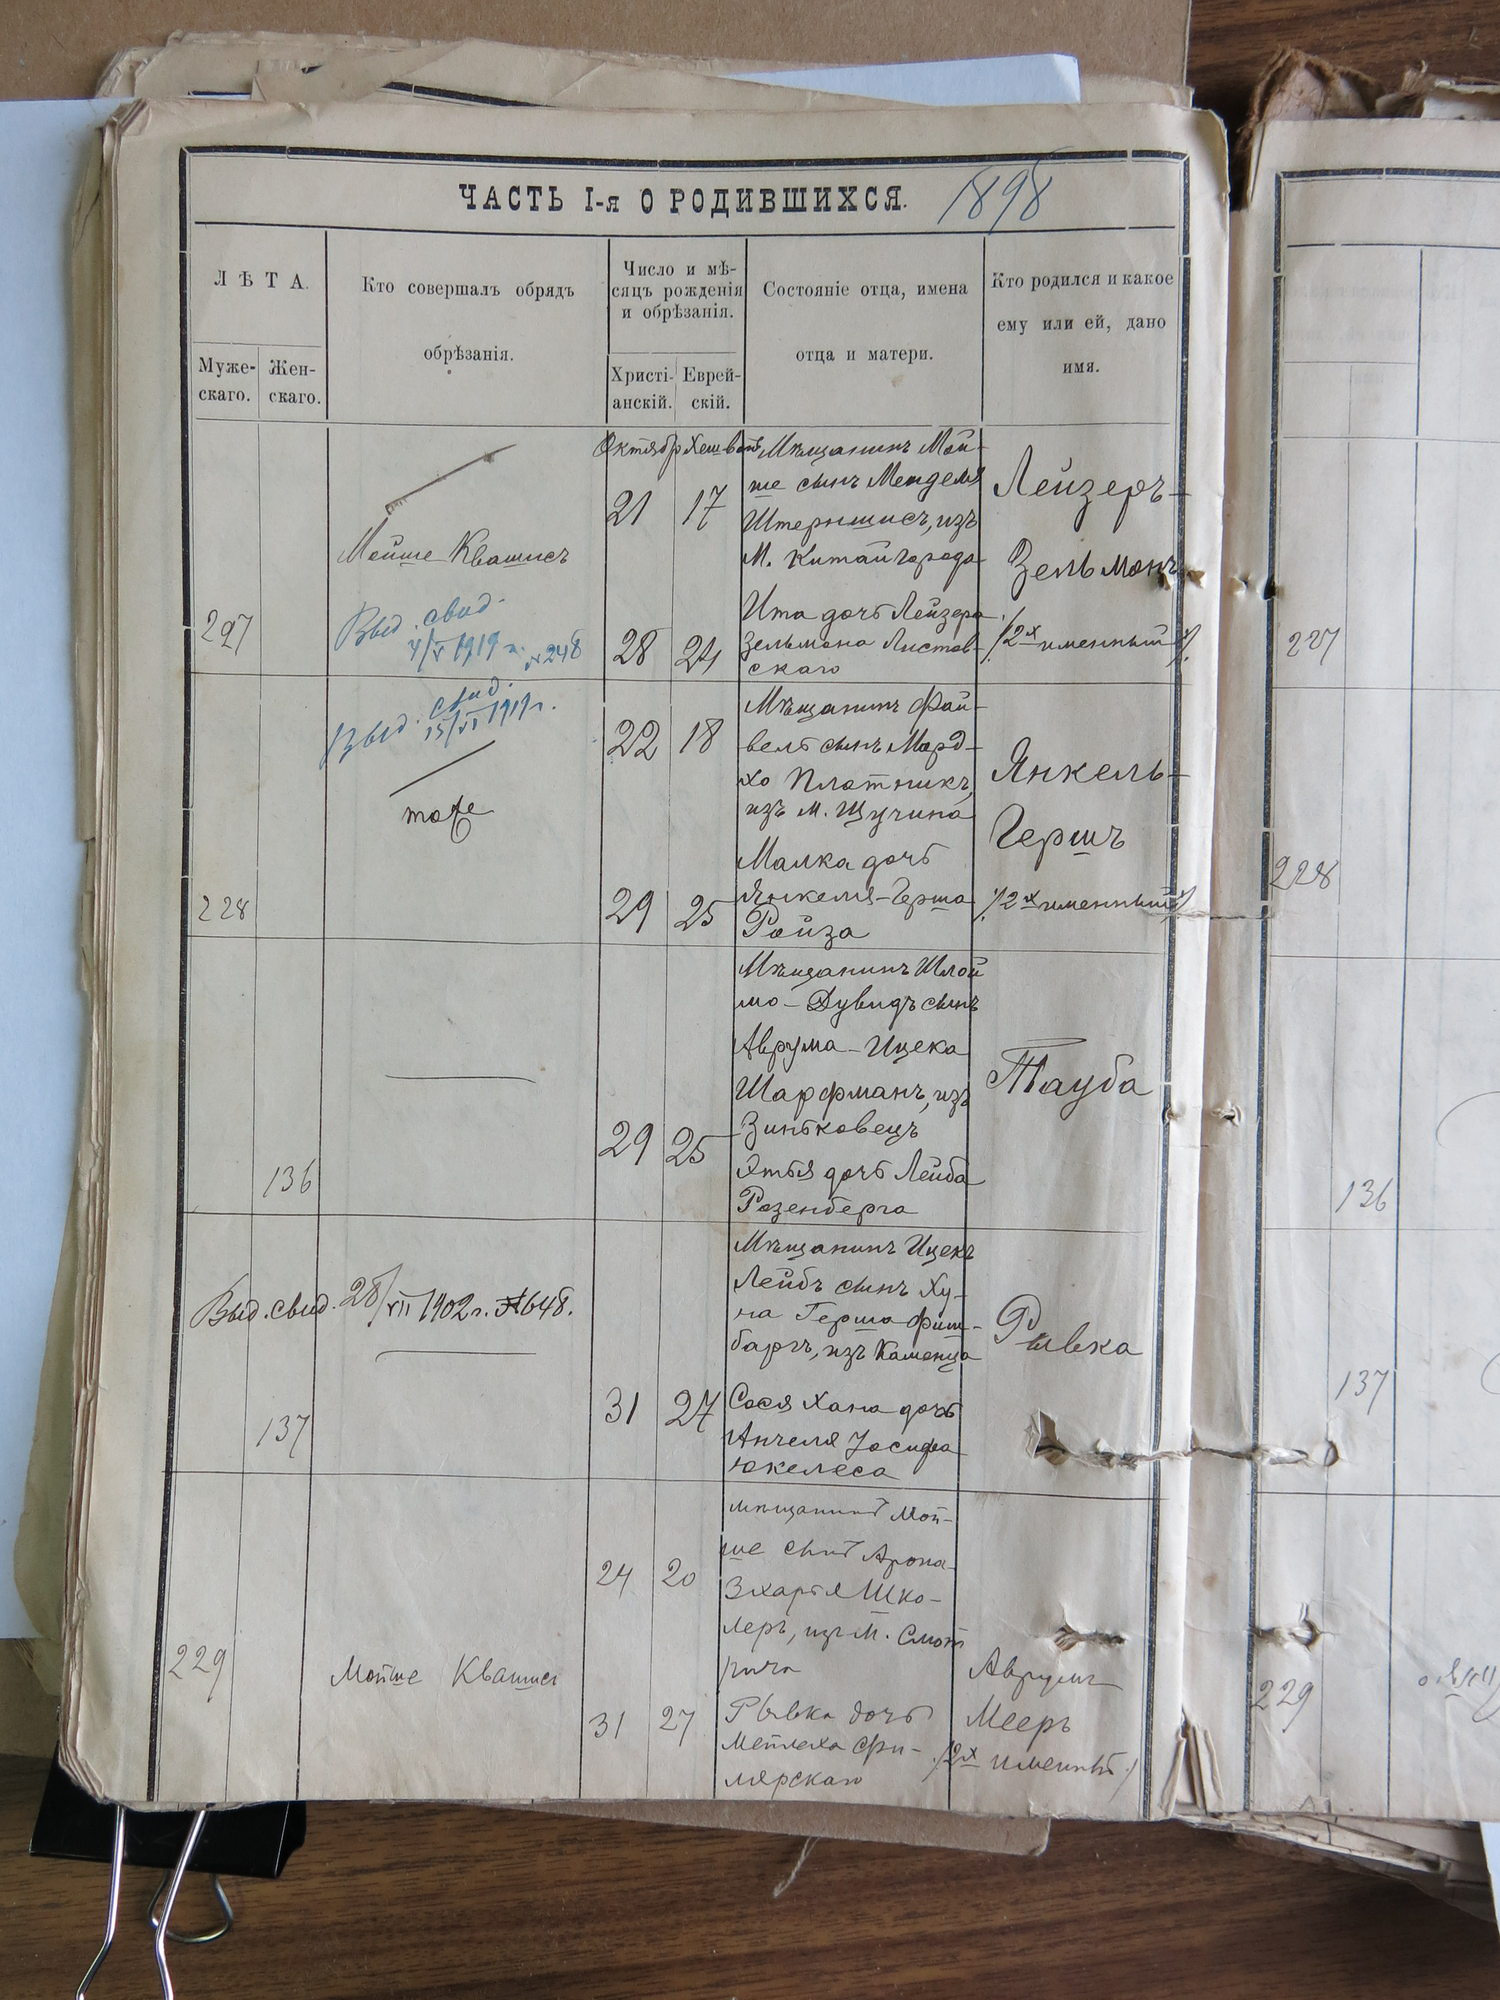 ЧАСТЬ I-я О РОДИВШИХСЯ. 1898
ЛѢТА.
Муже-
скаго.
Жен-
скаго.
Кто совершалъ обрядъ
обрѣзанія.
Число и мѣ-
сяцъ рожденія
и обрѣзанія.
Христі-
анскій.
Еврей-
скій.
Состояніе отца, имена
отца и матери.
Кто родился и какое
ему или ей, дано
имя.
Октябр Хешвонъ
297
Мойше Квашисъ
Выд. свид.
4/V 1919 г. №248
21 17
28 24
Мѣщанинъ Мой-
ше сынъ Менделя
Штерншисъ, изъ
М. Китайгорода
Ита дочь Лейзера
Зельмона Листов-
скаго
Лейзеръ-
Зельмонъ
/2х именный/
228
Выд. свид.
15/VI 1919 г.
тоже
22 18
29 25
Мѣщанинъ Фай-
вель сынъ Морд-
хо Плотникъ,
изъ м. Щучина
Малка дочь
Янкеля-Герша
Ройза
Янкель-
Гершъ
/2х именный/
136
29 25
Мѣщанинъ Шлой
мо-Дувидъ сынъ
Аврума-Ицека
Шарфманъ, изъ
Зиньковецъ
Этья дочь Лейба
Розенберга
Тауба
137
Выд. свид. 28/VII 1902 г. №648.
31 27
Мѣщанинъ Ицекъ
Лейбъ сынъ Ху-
на Герша Фиш-
баргъ, изъ Каменца
Сося Хана дочь
Анчеля Іосифа
Юкелеса
Рывка
229
Мойше Квашис
24 20
31 27
мѣщанинъ Мой-
ше сынъ Арона-
Зхарья Шко-
леръ, изъ м. Смот
рича
Рывка дочь
Мейлеха
лярскаго
Аврумъ
Мееръ
/2х именный/
227
228
136
137
229